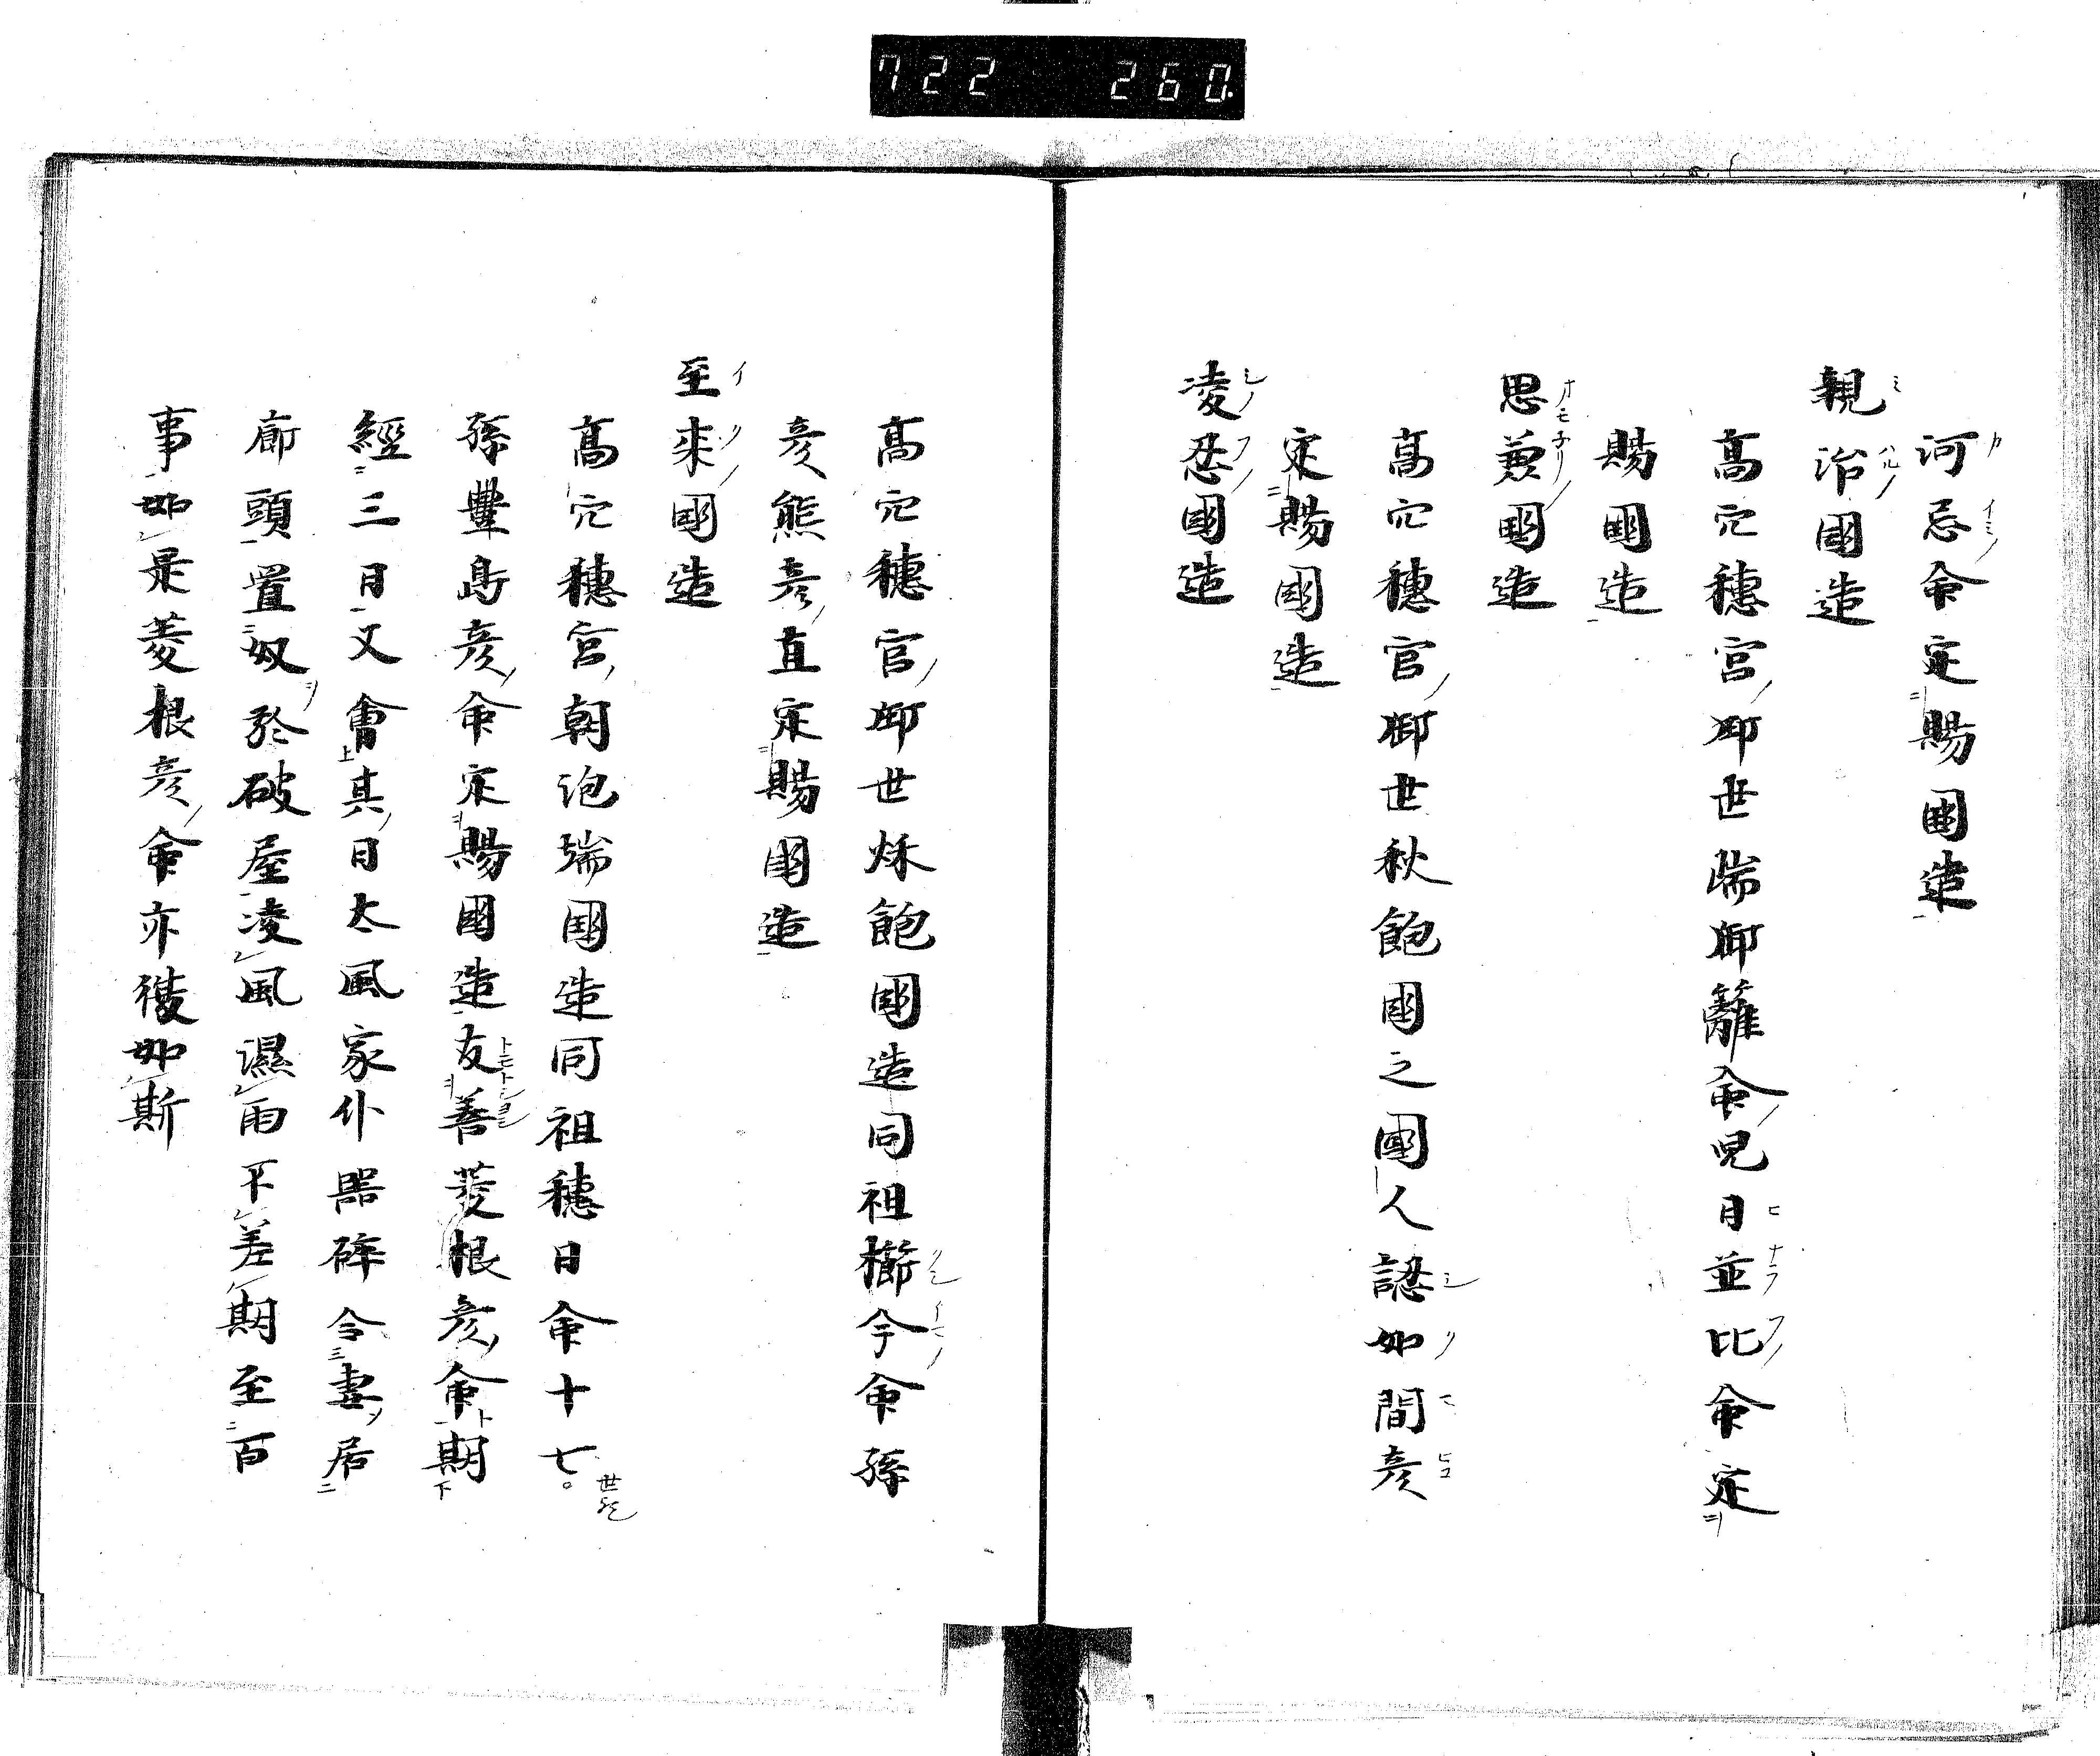 722 260
河忌命定賜國造
親治國造
高穴穗宮御世瑞御籬命兒日並比命定
賜國造
思兼國造
高穴穗宮御世秋飽國之國人認如間彥
定賜國造
凌忍國造
高穴穗宮御世秌飽國造同祖櫛今命孫
彥熊彥直定賜國造
至來國造
高穴穗宮朝泡瑞國造同祖穗日命十七世孫
孫豐島彥命定賜國造友善菱根彥命期
經三月又會其日太風家仆器碎令妻居
廊頭置奴於破屋凌風濕雨不差期至百
事如是菱根彥命亦獲如斯